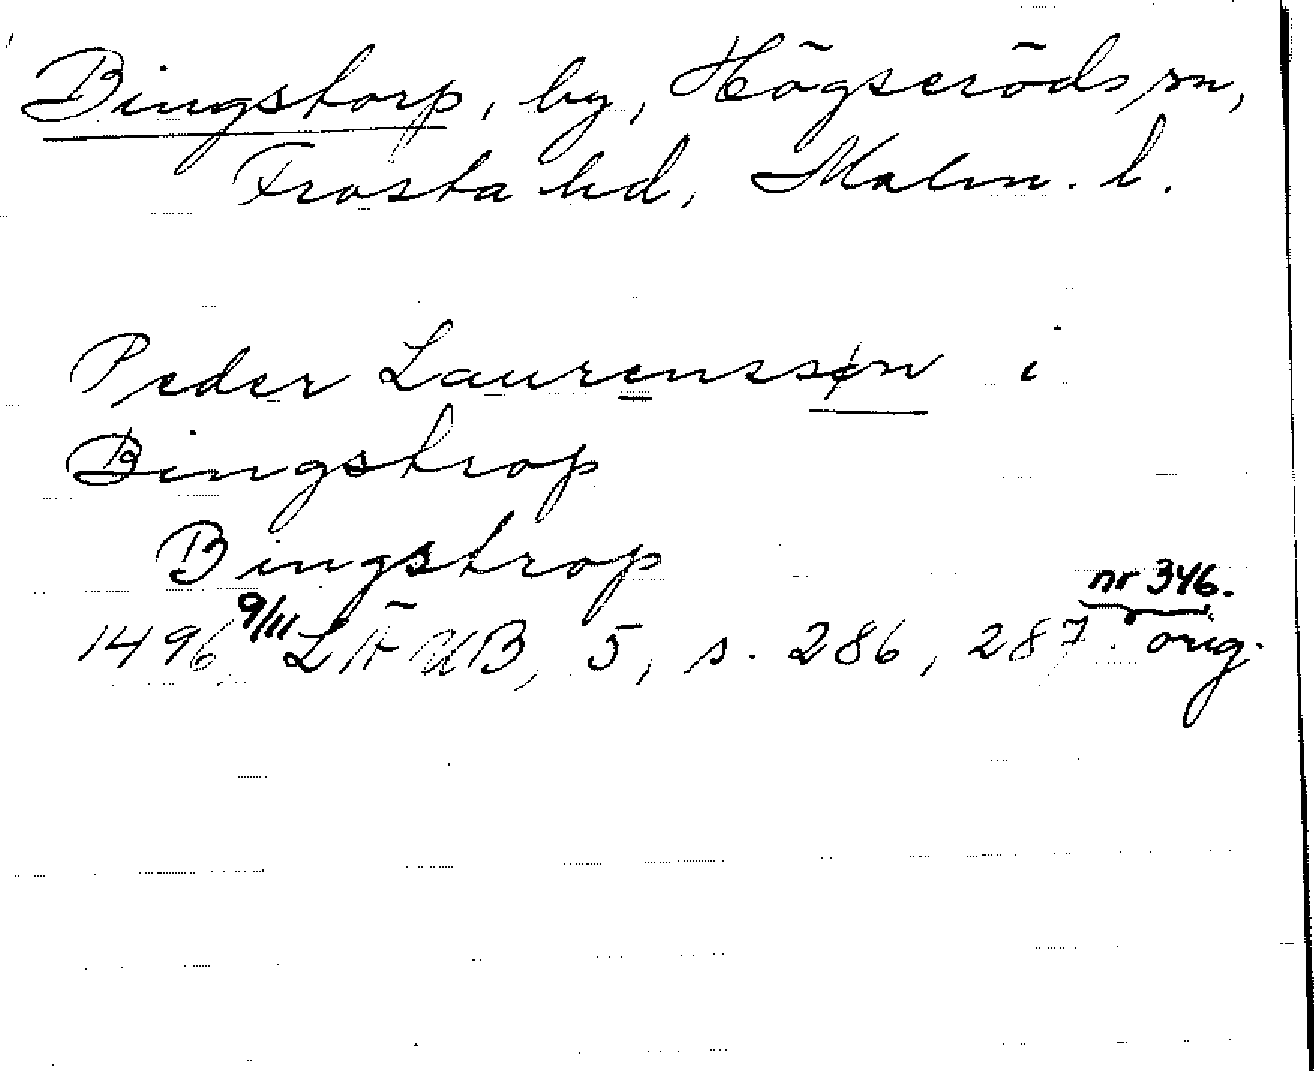 Bingstorp, by, Högseröds sn,
Frosta hd, Malm. l.
Peder Laurenssøn i
Bingstrop
Bingstrop
nr 346.
1496 9/11 LÄUB, 5, s. 286, 287. orig.